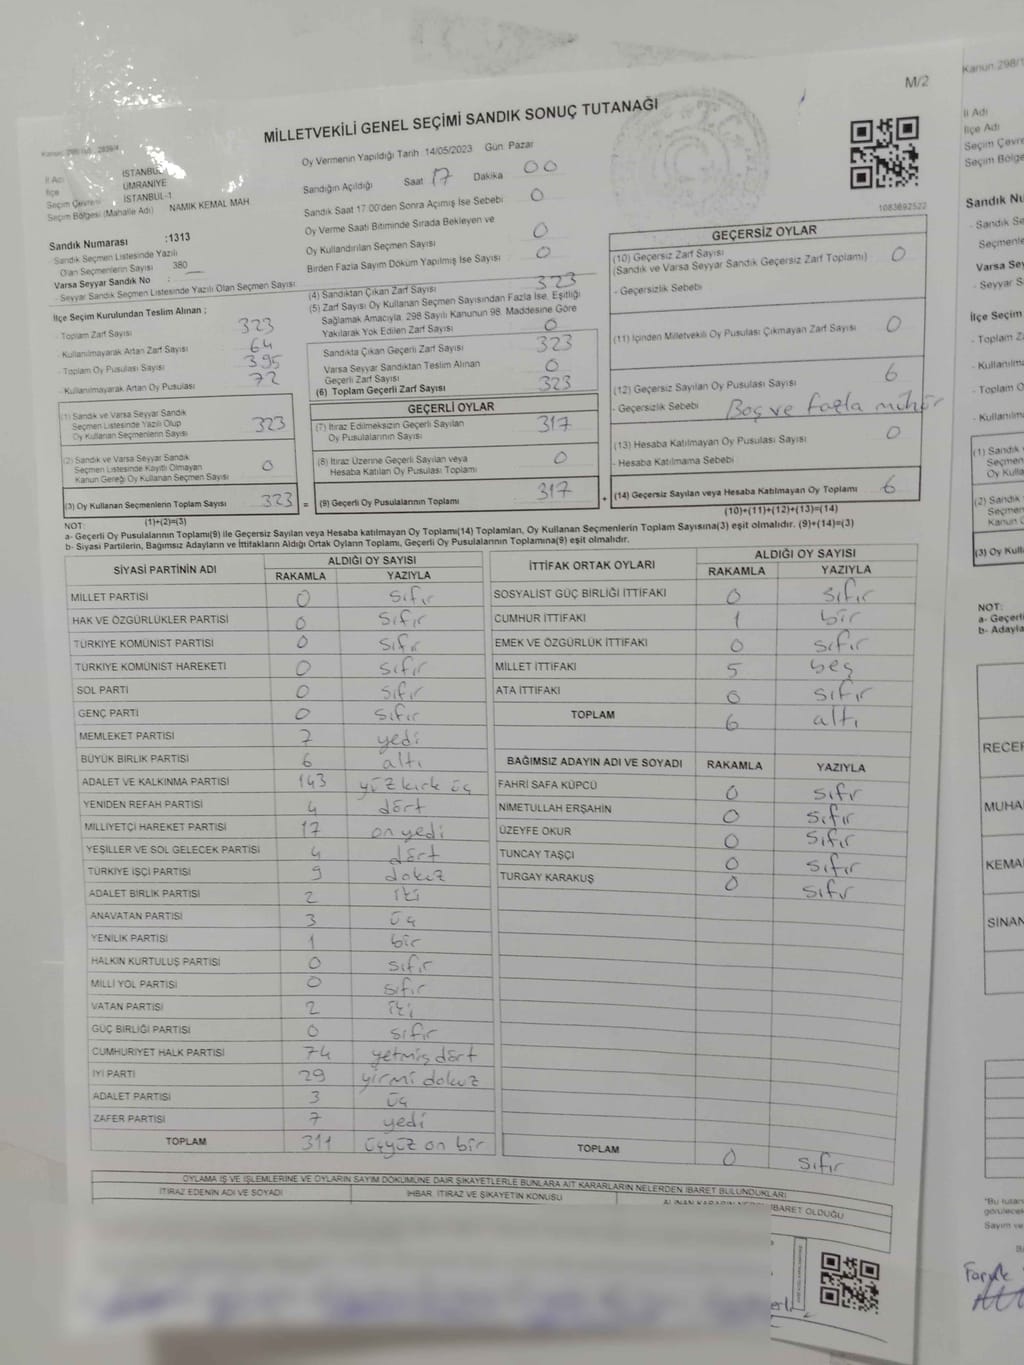 M/2
MİLLETVEKİLİ GENEL SEÇİMİ SANDIK SONUÇ TUTANAĞI
Oy Vermenin Yapıldığı Tarih 14/05/2023 Gün Pazar
İl Adı İSTANBUL
İlçe ÜMRANİYE
Seçim Çevresi İSTANBUL-1
Seçim Bölgesi (Mahalle Adı) NAMIK KEMAL MAH.
Sandık Numarası :1313
- Sandık Seçmen Listesinde Yazılı
Olan Seçmenlerin Sayısı 380
Varsa Seyyar Sandık No :
- Seyyar Sandık Seçmen Listesinde Yazılı Olan Seçmen Sayısı:
İlçe Seçim Kurulundan Teslim Alınan ;
- Toplam Zarf Sayısı 323
- Kullanılmayarak Artan Zarf Sayısı 64
- Toplam Oy Pusulası Sayısı 395
- Kullanılmayarak Artan Oy Pusulası 72
(1) Sandık ve Varsa Seyyar Sandık
Seçmen Listesinde Yazılı Olup
Oy Kullanan Seçmenlerin Sayısı 323
(2) Sandık ve Varsa Seyyar Sandık
Seçmen Listesinde Kayıtlı Olmayan
Kanun Gereği Oy Kullanan Seçmen Sayısı 0
(3) Oy Kullanan Seçmenlerin Toplam Sayısı 323 =
(1)+(2)=(3)
Sandığın Açıldığı Saat 17 Dakika 00
Sandık Saat 17:00'den Sonra Açımış İse Sebebi 0
Oy Verme Saati Bitiminde Sırada Bekleyen ve
Oy Kullandırılan Seçmen Sayısı 0
Birden Fazla Sayım Döküm Yapılmış İse Sayısı 0
(4) Sandıktan Çıkan Zarf Sayısı 323
(5) Zarf Sayısı Oy Kullanan Seçmen Sayısından Fazla İse, Eşitliği
Sağlamak Amacıyla, 298 Sayılı Kanunun 98. Maddesine Göre
Yakılarak Yok Edilen Zarf Sayısı 0
Sandıkta Çıkan Geçerli Zarf Sayısı 323
Varsa Seyyar Sandıktan Teslim Alınan
Geçerli Zarf Sayısı 0
(6) Toplam Geçerli Zarf Sayısı 323
GEÇERLİ OYLAR
(7) İtiraz Edilmeksizin Geçerli Sayılan
Oy Pusulalarının Sayısı 317
(8) İtiraz Üzerine Geçerli Sayılan veya
Hesaba Katılan Oy Pusulası Toplamı 0
(9) Geçerli Oy Pusulalarının Toplamı 317 +
1083692522
GEÇERSİZ OYLAR
(10) Geçersiz Zarf Sayısı
(Sandık ve Varsa Seyyar Sandık Geçersiz Zarf Toplamı) 0
- Geçersizlik Sebebi
(11) İçinden Milletvekili Oy Pusulası Çıkmayan Zarf Sayısı 0
(12) Geçersiz Sayılan Oy Pusulası Sayısı 6
- Geçersizlik Sebebi Boş ve fazla mühür
(13) Hesaba Katılmayan Oy Pusulası Sayısı 0
- Hesaba Katılmama Sebebi
(14) Geçersiz Sayılan veya Hesaba Katılmayan Oy Toplamı 6
(10)+(11)+(12)+(13)=(14)
NOT:
a- Geçerli Oy Pusulalarının Toplamı(9) ile Geçersiz Sayılan veya Hesaba katılmayan Oy Toplamı(14) Toplamları, Oy Kullanan Seçmenlerin Toplam Sayısına(3) eşit olmalıdır. (9)+(14)=(3)
b- Siyasi Partilerin, Bağımsız Adayların ve İttifakların Aldığı Ortak Oyların Toplamı, Geçerli Oy Pusulalarının Toplamına(9) eşit olmalıdır.
SİYASİ PARTİNİN ADI ALDIĞI OY SAYISI
RAKAMLA YAZIYLA
MİLLET PARTİSİ 0 sıfır
HAK VE ÖZGÜRLÜKLER PARTİSİ 0 sıfır
TÜRKİYE KOMÜNİST PARTİSİ 0 sıfır
TÜRKİYE KOMÜNİST HAREKETİ 0 sıfır
SOL PARTİ 0 sıfır
GENÇ PARTİ 0 sıfır
MEMLEKET PARTİSİ 7 yedi
BÜYÜK BİRLİK PARTİSİ 6 altı
ADALET VE KALKINMA PARTİSİ 143 yüz kırk üç
YENİDEN REFAH PARTİSİ 4 dört
MİLLİYETÇİ HAREKET PARTİSİ 17 on yedi
YEŞİLLER VE SOL GELECEK PARTİSİ 4 dört
TÜRKİYE İŞÇİ PARTİSİ 9 dokuz
ADALET BİRLİK PARTİSİ 2 iki
ANAVATAN PARTİSİ 3 üç
YENİLİK PARTİSİ 1 bir
HALKIN KURTULUŞ PARTİSİ 0 sıfır
MİLLİ YOL PARTİSİ 0 sıfır
VATAN PARTİSİ 2 iki
GÜÇ BİRLİĞİ PARTİSİ 0 sıfır
CUMHURİYET HALK PARTİSİ 74 yetmiş dört
İYİ PARTİ 29 yirmi dokuz
ADALET PARTİSİ 3 üç
ZAFER PARTİSİ 7 yedi
TOPLAM 311 üçyüz on bir
İTTİFAK ORTAK OYLARI ALDIĞI OY SAYISI
RAKAMLA YAZIYLA
SOSYALİST GÜÇ BİRLİĞİ İTTİFAKI 0 sıfır
CUMHUR İTTİFAKI 1 bir
EMEK VE ÖZGÜRLÜK İTTİFAKI 0 sıfır
MİLLET İTTİFAKI 5 beş
ATA İTTİFAKI 0 sıfır
TOPLAM 6 altı
BAĞIMSIZ ADAYIN ADI VE SOYADI RAKAMLA YAZIYLA
FAHRİ SAFA KÜPCÜ 0 sıfır
NİMETULLAH ERŞAHİN 0 sıfır
ÜZEYFE OKUR 0 sıfır
TUNCAY TAŞÇI 0 sıfır
TURGAY KARAKUŞ 0 sıfır
TOPLAM 0 sıfır
OYLAMA İŞ VE İŞLEMLERİNE VE OYLARIN SAYIM DÖKÜMÜNE DAİR ŞİKAYETLERLE BUNLARA AİT KARARLARIN NELERDEN İBARET BULUNDUKLARI
İTİRAZ EDENİN ADI VE SOYADI İHBAR, İTİRAZ VE ŞİKAYETİN KONUSU İBARET OLDUĞU
Kanun 298/1
İl Adı
İlçe Adı
Seçim Çevre
Seçim Bölge
Sandık Nu
- Sandık Se
Seçmenle
Varsa Sey
- Seyyar S
İlçe Seçim
- Toplam Z
- Kullanılma
- Toplam O
- Kullanılm
(1) Sandık
Seçmen
Oy Kulla
(2) Sandık
Seçmen
Kanun G
(3) Oy Kull
NOT:
a- Geçerli
b- Adayla
RECEP
MUHA
KEMA
SİNAN
"Bu tutan
görülecek
Sayım ve
Faruk